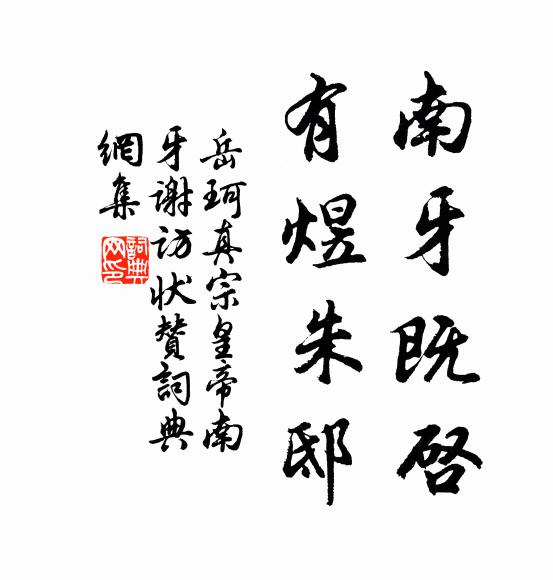 南牙既啓
有煜朱邸
岳珂真宗皇帝南
牙谢访状赞詞典
網集
詞典
网印